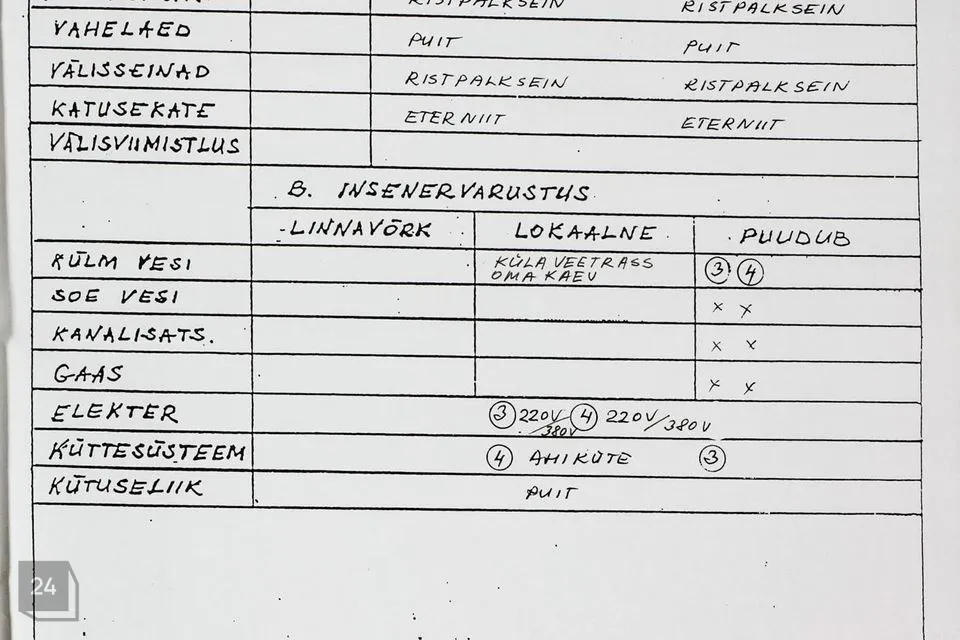 RISTPALKSEIN RISTPALKSEIN
VAHELAED PUIT PUIT
VÄLISSEINAD RISTPALKSEIN RISTPALKSEIN
KATUSEKATE ETERNIIT ETERNIIT
VÄLISVIIMISTLUS
B. INSENERVARUSTUS
LINNAVÕRK LOKAALNE PUUDUB
KÜLM VESI KÜLA VEETRASS 3 4
OMA KAEV
SOE VESI x x
KANALISATS. x x
GAAS x x
ELEKTER 3 220V/380V 4 220V/380V
KÜTTESÜSTEEM 4 AHIKÜTE 3
KÜTUSELIIK PUIT
24